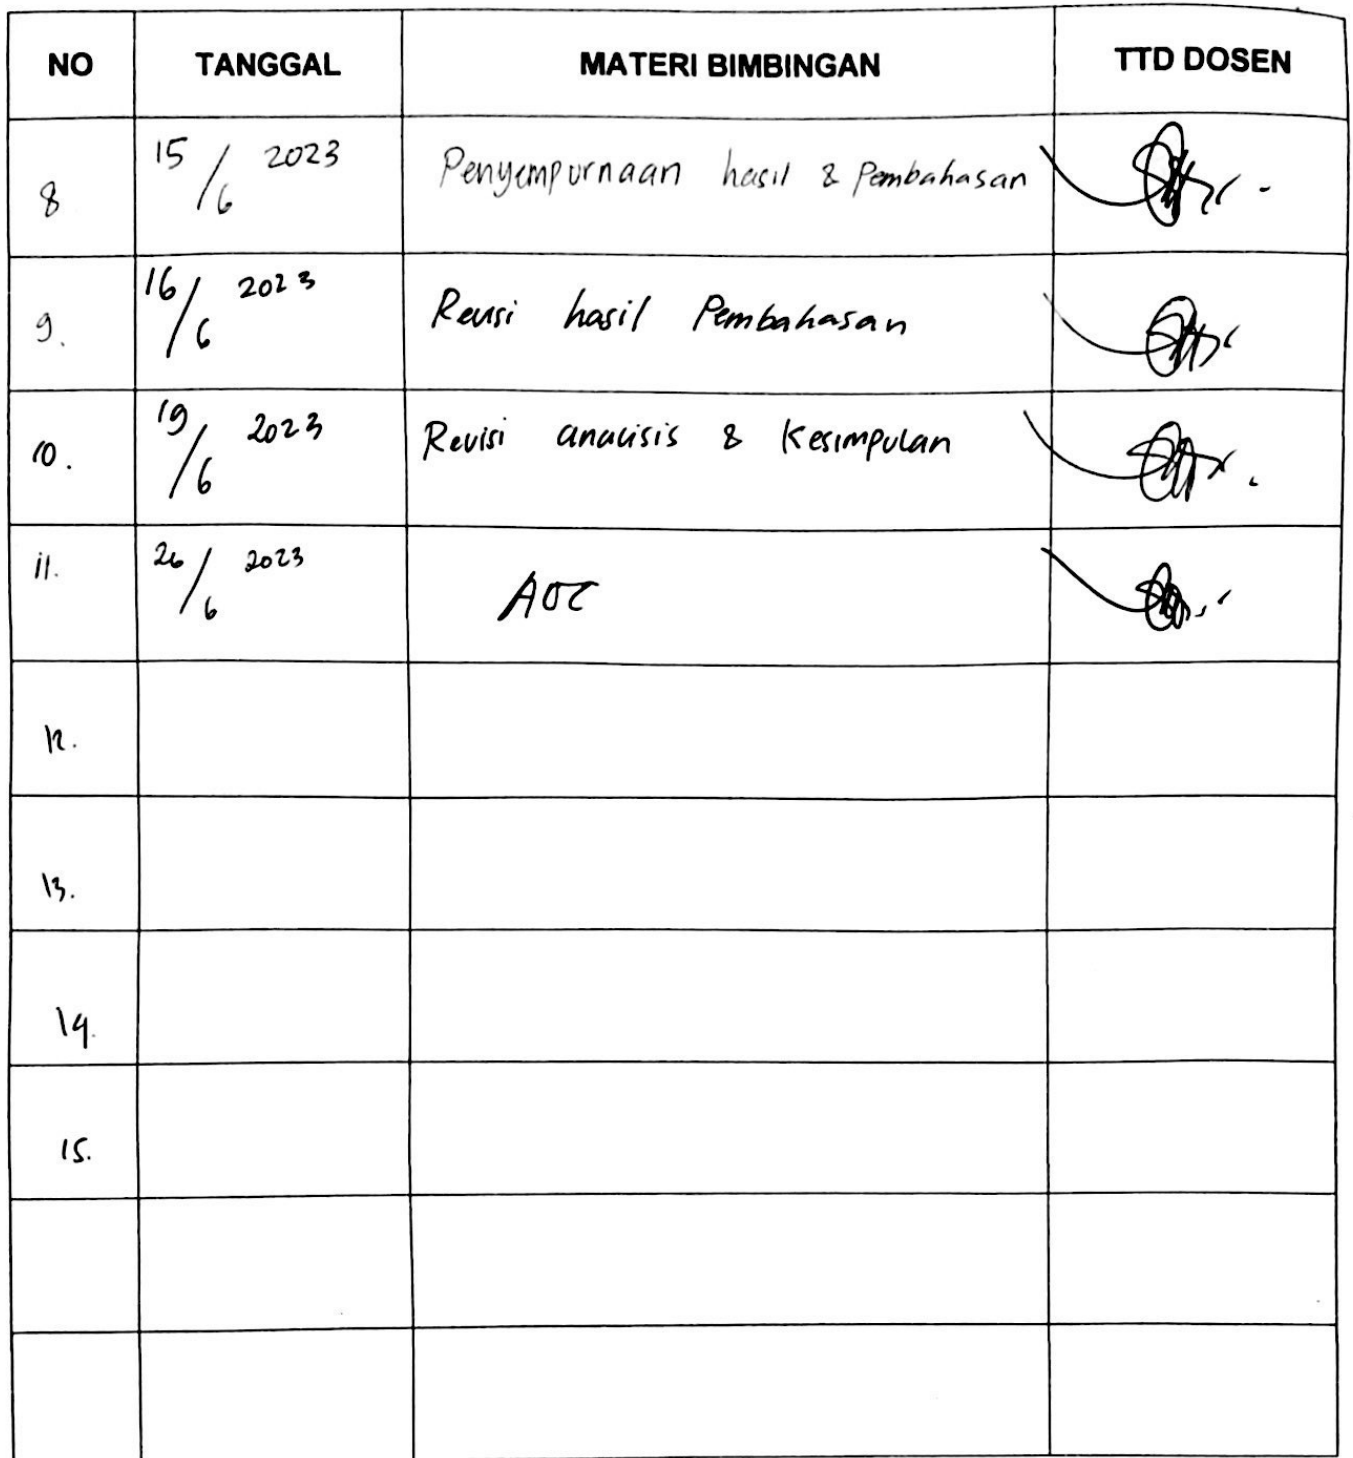 NO TANGGAL MATERI BIMBINGAN TTD DOSEN
8 15/6 2023 Penyempurnaan hasil & Pembahasan
9. 16/6 2023 Revisi hasil Pembahasan
10. 19/6 2023 Revisi analisis & Kesimpulan
11. 26/6 2023
12.
13.
14.
15.